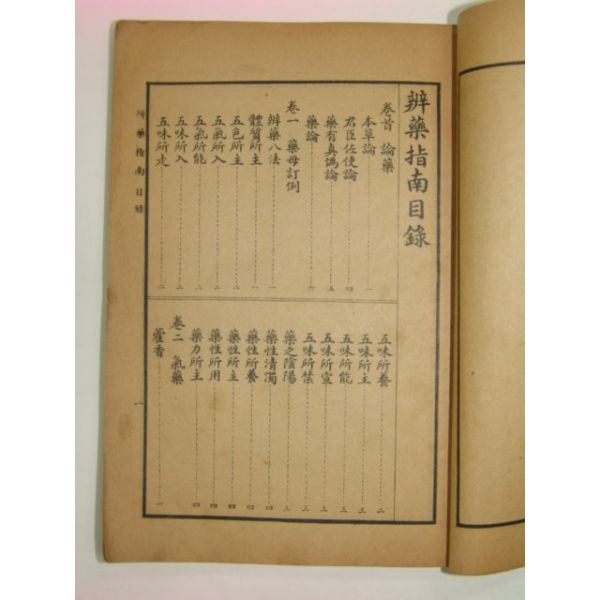 辨藥指南目錄
卷首 論藥
本草論 一
君臣佐使論 四
藥有真僞論 五
藥論 六
卷一 藥母訂例
辨藥八法 一
體質所主 一
五色所主 二
五氣所入 二
五氣所能 二
五味所入 二
五味所走 二
五味所養 二
五味所主 三
五味所能 三
五味所宜 三
五味所禁 三
藥之陰陽 三
藥性清濁 四
藥性所養 四
藥性所主 四
藥性所用 四
藥力所主 四
卷二 氣藥
藿香 一
辨藥指南目錄
一